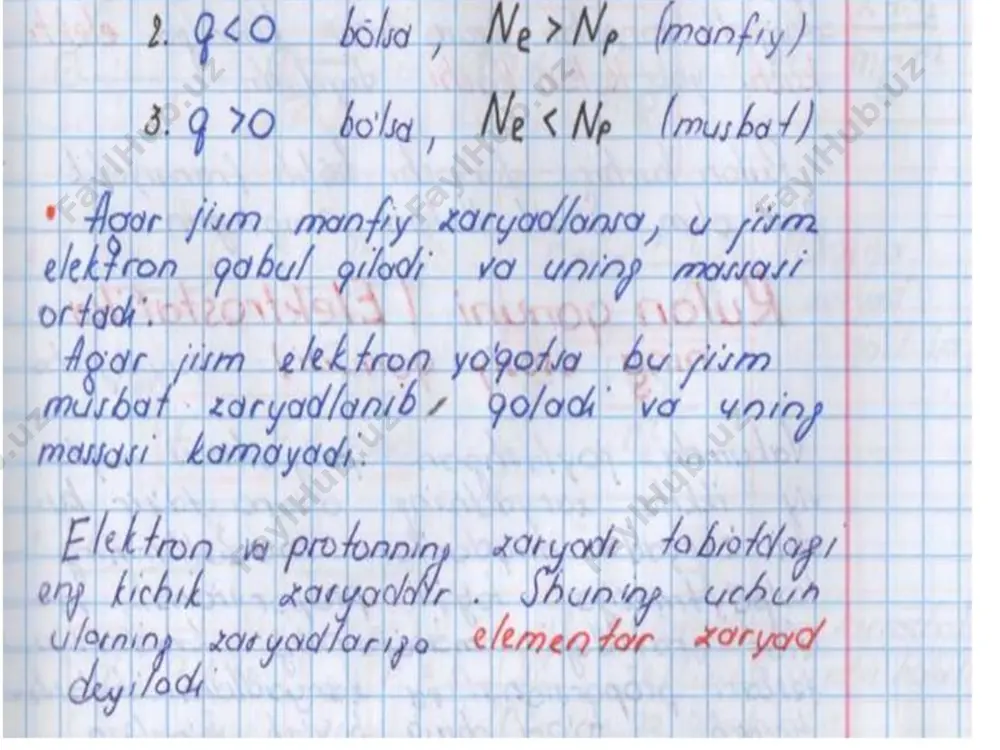 2. q<0 bo'lsa, Ne > Np (manfiy)
3. q >0 bo'lsa, Ne < Np (musbat)
• Agar jism manfiy zaryadlansa, u jism
elektron qabul qiladi va uning massasi
ortadi.
Agar jism elektron yo'qotsa bu jism
musbat zaryadlanib, qoladi va uning
massasi kamayadi.
Elektron va protonning zaryadi tabiatdagi
eng kichik zaryaddir. Shuning uchun
ularning zaryadlariga elementar zaryad
deyiladi
FaylHub.uz